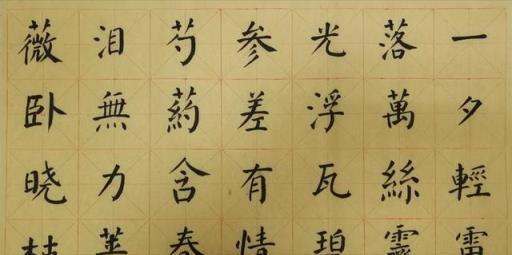 一夕輕雷
落萬絲
光浮瓦碧
参差有情
芍葯含春
泪無力
薇卧晓